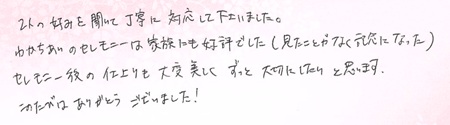 2人の好みを聞いて丁寧に対応して下さいました。
わかちあいのセレモニーは家族にも好評でした(見たことがなく記念になった)
セレモニー後の仕上りも大変美しくずっと大切にしたいと思います.
このたびはありがとうございました!